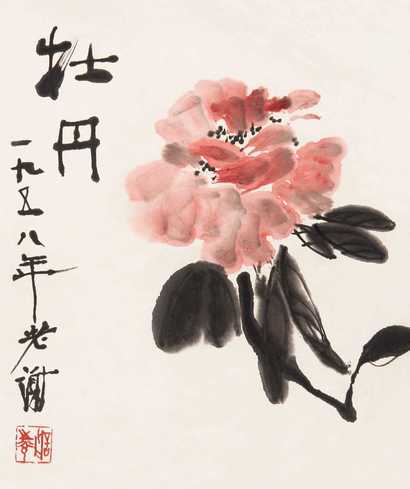 牡丹
一九五八年老谢